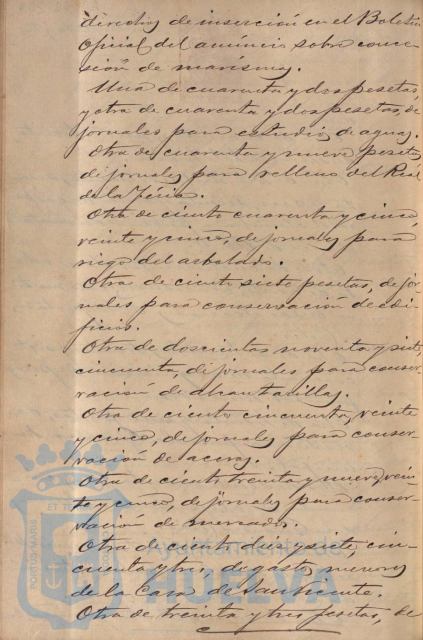 directos de inserción en el Boletin
Oficial del anuncio sobre conce-
sión de marismas.
Una de cuarenta y dos pesetas,
y otra de cuarenta y dos pesetas, de
jornales para estudios de aguas.
Otra de cuarenta y nueve pesetas
de jornales para relleno del Real
de la Féria.
Otra de ciento cuarenta y cinco,
veinte y cinco, de jornales para
riego del arbolado.
Otra de ciento siete pesetas, de jor-
nales para conservación de edi-
ficios.
Otra de doscientas noventa y siete,
cincuenta, de jornales para conser-
vación de alcantarillas.
Otra de ciento cincuenta, veinte
y cinco, de jornales para conser-
vación de aceras.
Otra de ciento treinta y nueve, vein-
te y cinco, de jornales para conser-
vación de mercados.
Otra de ciento diez y siete, cin-
cuenta y tres, de gastos menores
de la Casa de
Otra de treinta y tres pesetas, de
PORTUS MARIS ET TE
Ayuntamiento de
HUELVA